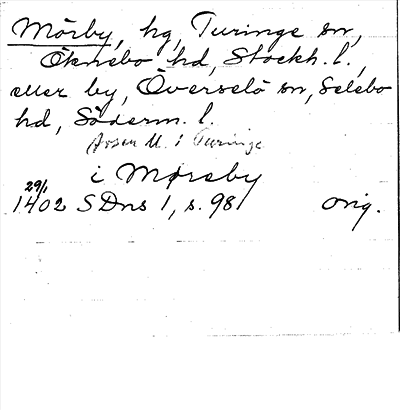 Mörby, hg, Turinge sn,
Öknebo hd, Stockh. l.,
eller by, Överselö sn, Selebo
hd, Söderm. l.
M. i Turinge
i Mørsby
29/1
1402 SDns 1, s. 98 orig.